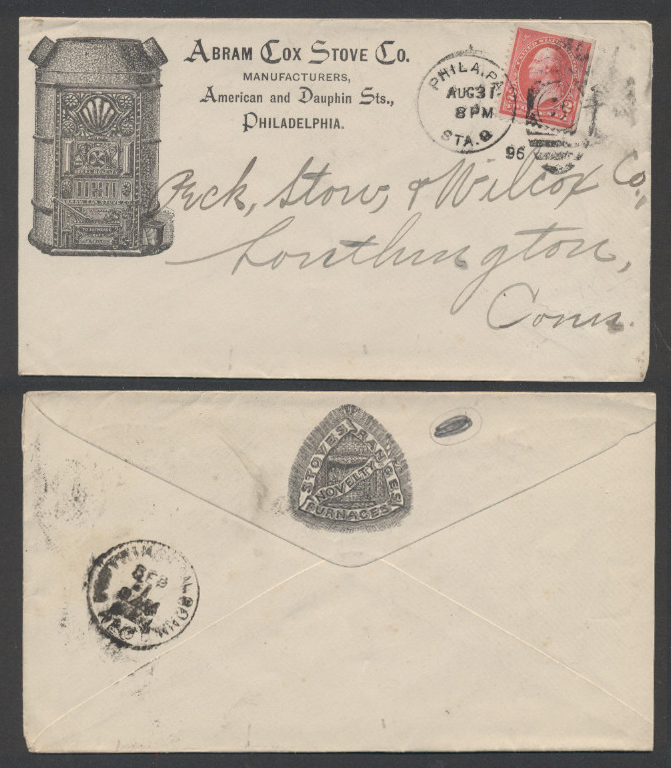 ABRAM COX STOVE CO.
MANUFACTURERS,
American and Dauphin Sts.,
PHILADELPHIA.
PHILA. PA.
AUG 31
8 PM
96
STA.
Peck, Stow, & Wilcox Co.,
Southington,
Conn.
STOVES RANGES
NOVELTY
FURNACES
SEP
CONN.